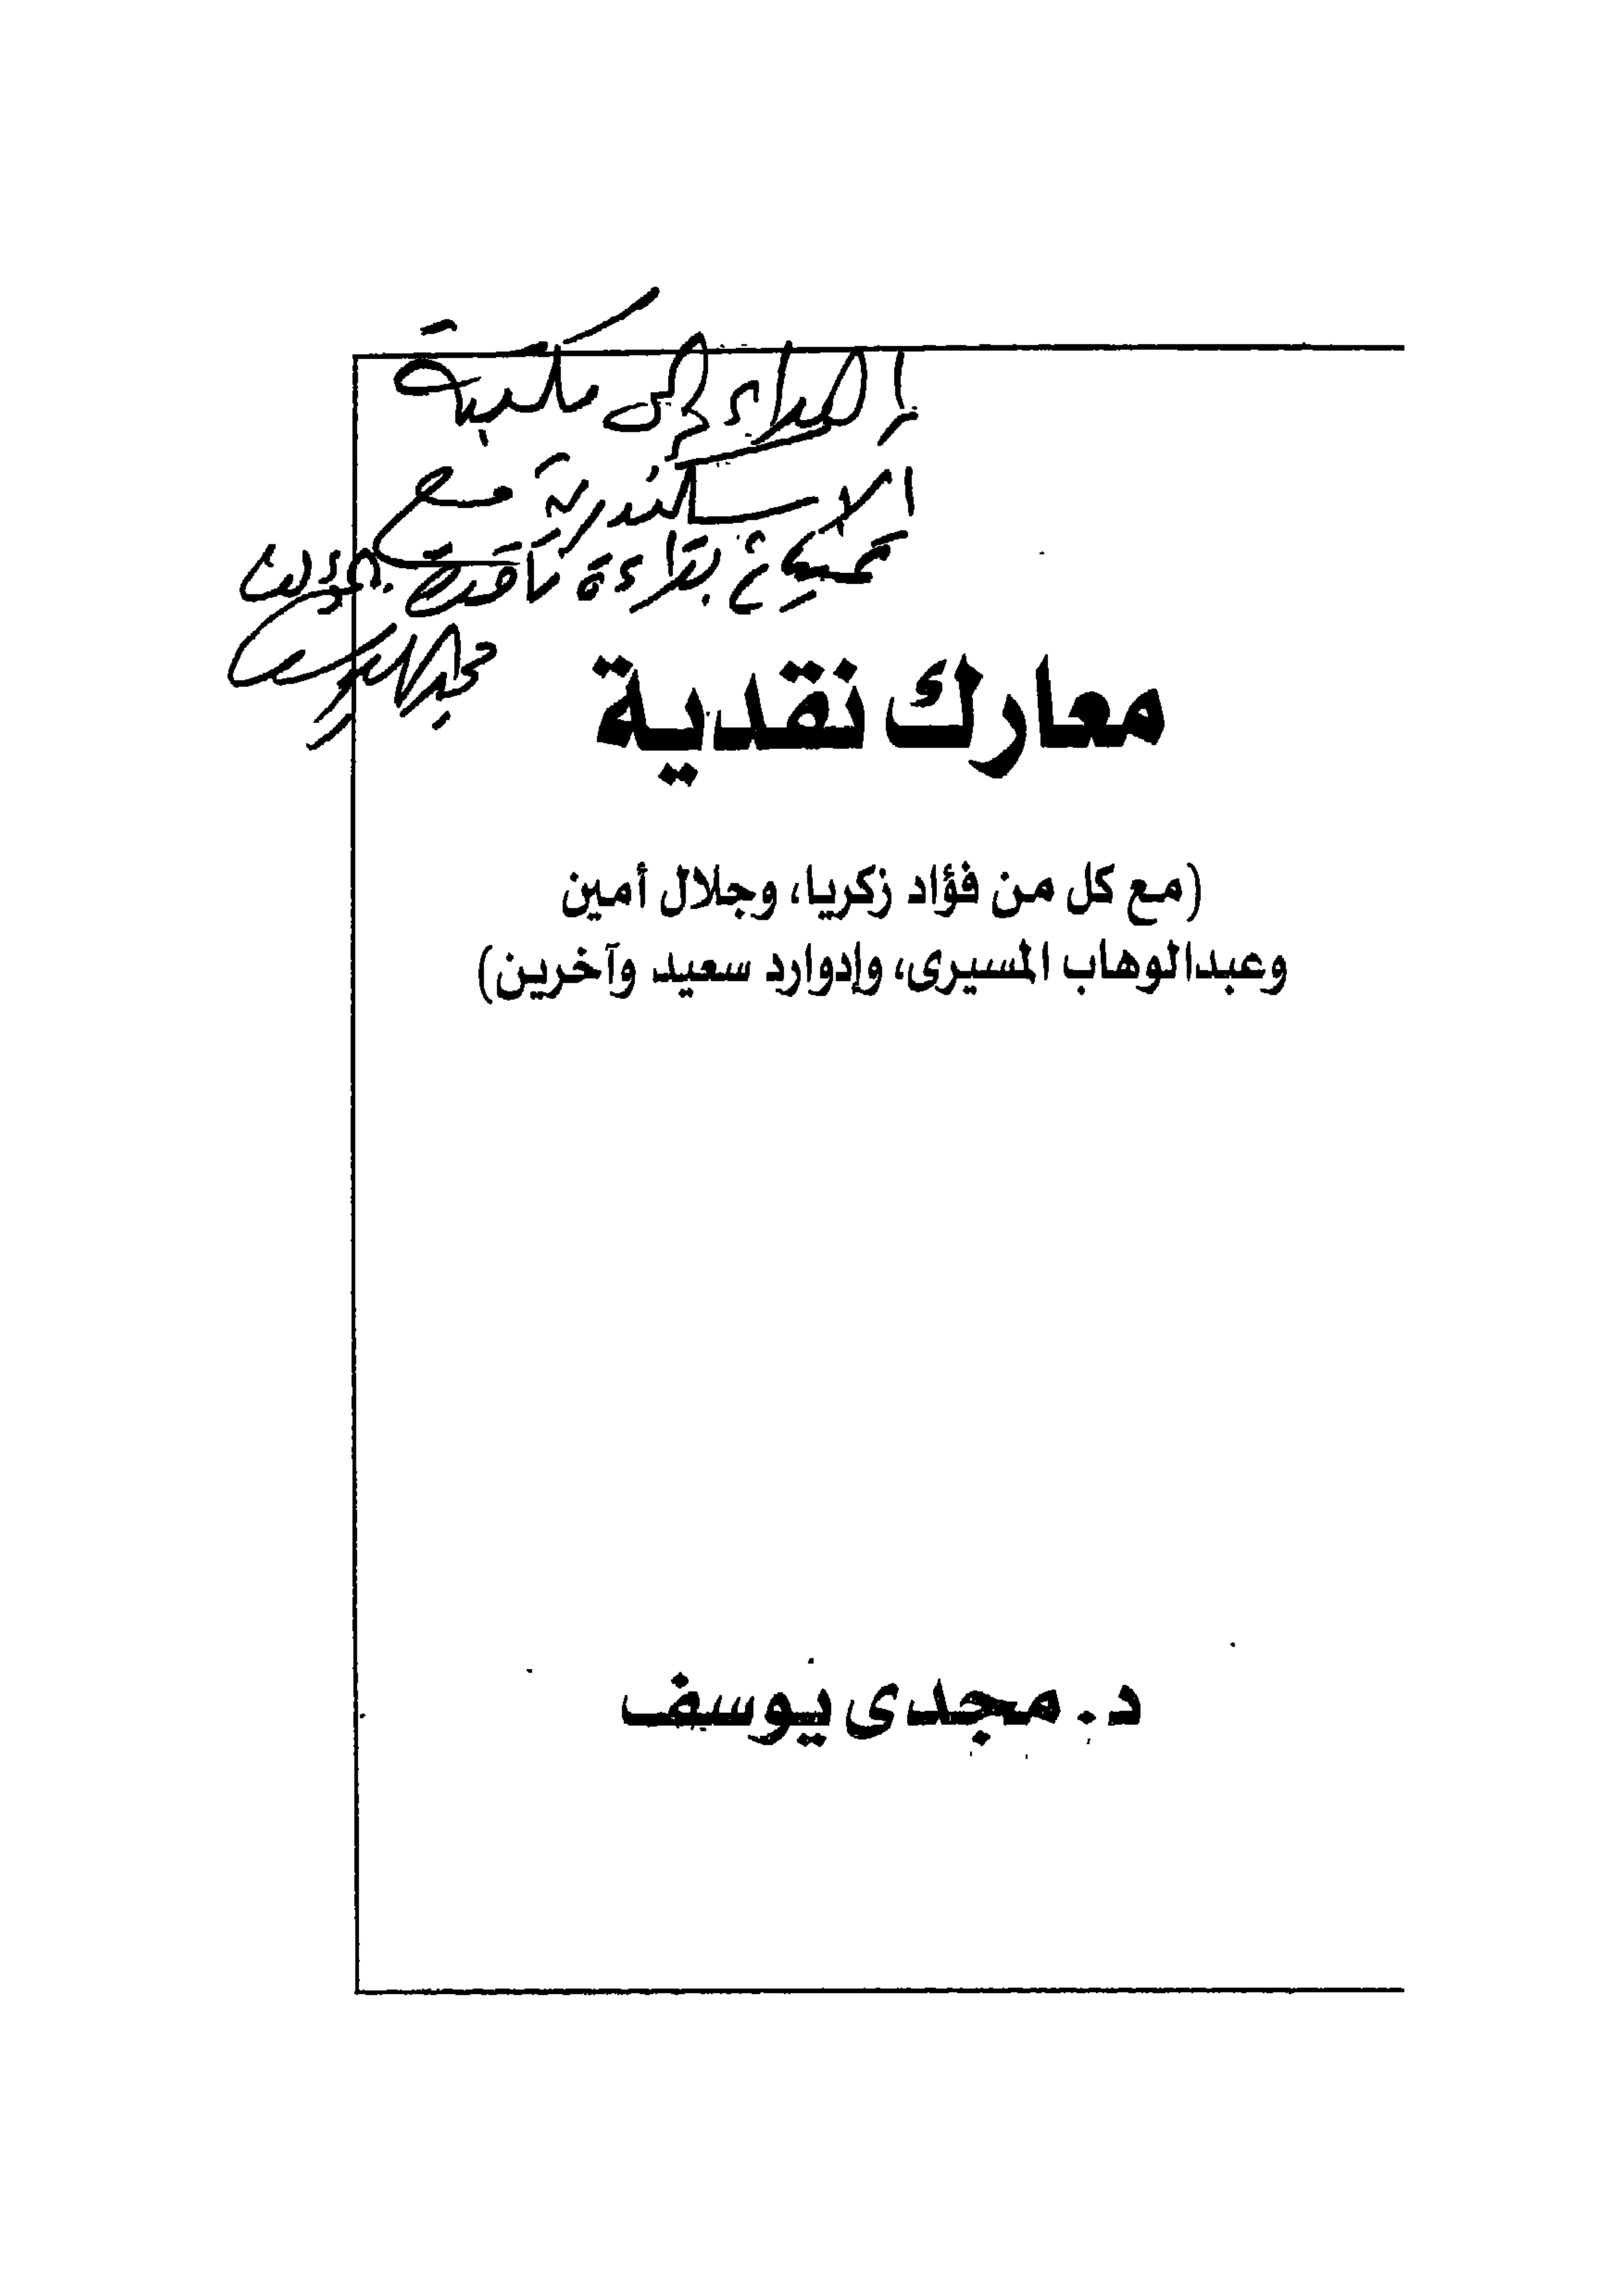 إهداء إلى مكتبة
الاسكندرية مع
بقراءة ناقدة
معارك نقدية
(مع كل من فؤاد زكريا، وجلال أمين
وعبدالوهاب المسيرى، وإدوارد سعيد وآخرين)
د. مجدى يوسف